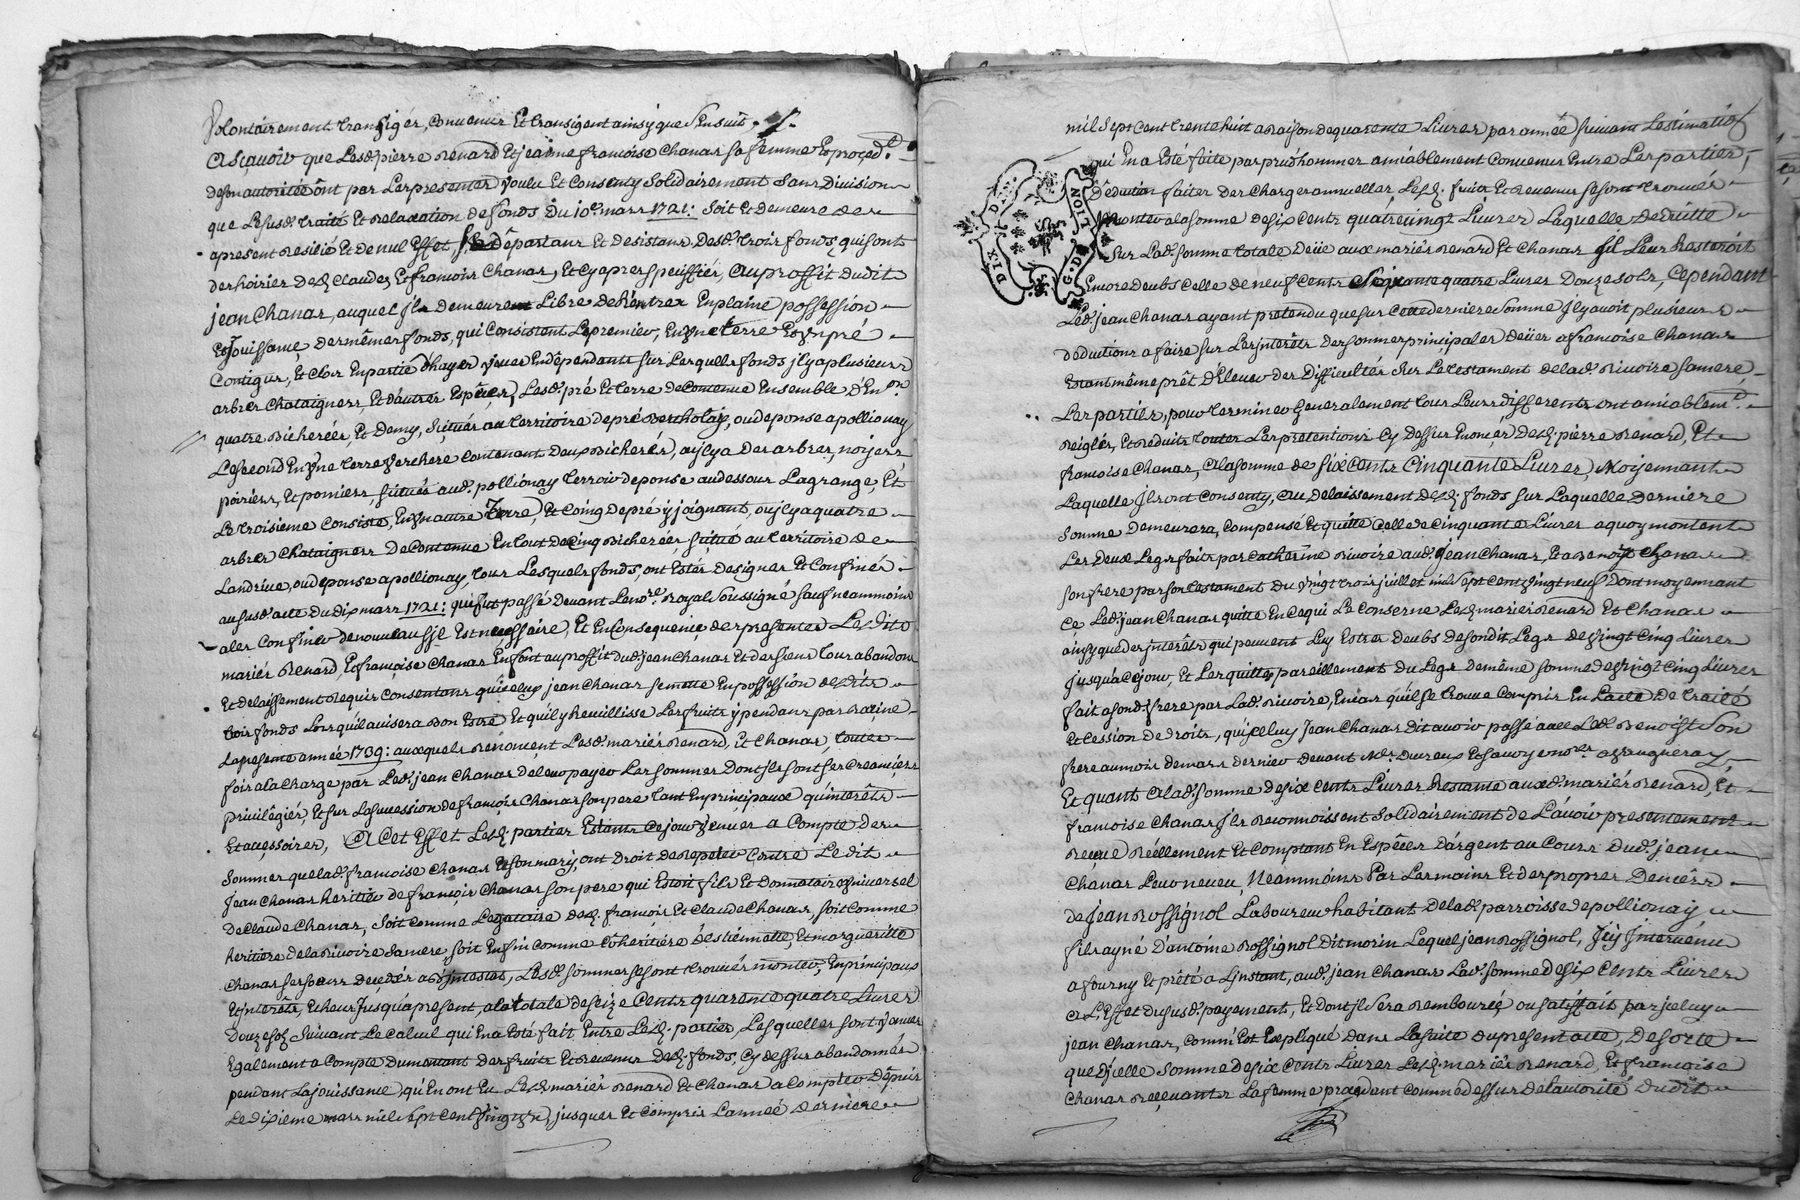 Volontairement transigér, convenir Et transigent ainsy que s'Ensuit.
Asçavoir que Lesd. pierre renard Et jeanne françoise Chanas sa femme Esproced.te
de son autoritée ônt par Les presentes voulu Et Consenty Solidairement Sans Division
que Lesusd. traité Et relaxation de fonds du 10e. mars 1721: Soit Et demeure des
apresent resilié Et de nul Effet Départans Et desistans desd. trois fonds, qui sont
des hoiries desd. Claude, Et françois Chanas, Et Cyapres speciffiés, Au proffit dudit
jean Chanas, auquel jls demeurent Libres de Rentrer En plaine possession
Et Jouissance des mêmes fonds, qui Consistent Lepremier, En Vne terre Et Vn pré
Contigus, Et Clos En partie d'hayes vives En dépendants sur Lesquels fonds jl y a plusieurs
arbres Chataigners, Et d'autres Espéces, Lesd. pré Et terre de Contenue Ensemble d'En.on
quatre bicherées, Et Demy, Situés au territoire de pré bertholay, ou de ponse a pollionay
Lesecond En Vne terre Verchere Contenant deux bicherés, ou jl y a des arbres, noyers
poiriers, Et pomiers, situés aud. pollionay terroir de ponse au dessous Lagrange, Et
Le troisieme Consiste, En Vne autre Terre, Et Coing de pré y joignant, ou jl y a quatre
arbres Chataigners de Contenue En tout de Cinq bicherées situé au territoire de
Landrive, ou de ponse a pollionay, tous Lesquels fonds, ont Estés designes Et Confinés
au susd. acte du dix mars 1721: qui fut passé devant Leno.re royal Soussigné sauf neammoins
a les Confiner de nouveau sjl Est nécessaire, Et En Consequence des presentes Lesdits
mariés Renard, Et françoise Chanas En font au proffit dud. jean Chanas Et des siens tous abandon
Et delaissement requis Consentans qu'iceluy jean Chanas se mette En possession desdits
trois fonds Lorsqu'il avisera bon Estre Et qu'il y Recuillisse Les fruits y pendans par racine
Lapresente année 1739: auxquels renoncent Lesd. mariés renard, Et Chanas, toutes
fois a la Charge par Led. jean Chanas de leur payer Les sommes dont jls sont ses Creanciers
privilégiés, Et sur La succession de françois Chanas son pere tant En principaux qu'interêts
Et accessoires, A Cet Effet Lesd. parties Estants Cejour venues a Compte des
Sommes que lad. françoise Chanas Et son mary, ont droit de repeter Contre Ledit
Jean Chanas heritier de françois Chanas son pere qui Estoit fils Et Donnataire Vniversel
de Claude Chanas, Soit Comme Legataire desd. françois Et Claude Chanas, soit Comme
heritiere de la rivoire sa mere, soit En fin comme Cohéritiére d'estiennette, Et marguerite
Chanas ses soeurs decedés ab jntestat, Lesd. sommes se sont trouvés monter, En principaux
Et jnterêts, Echeus Jusqu'apresent, a la totale de seize Cents quarente quatre Livres
Douze sols Suivant Le Calcul qui En a Esté fait Entre Lesd. parties, Lesquelles sont Venues
Egalement a Compte du montant des fruits Et revenus desd. fonds, Cy dessus abandonnés
pendant La jouissance, qu'En ont Eu Lesd. mariés renard Et Chanas a Compter Dépuis
Le dixieme mars mil sept cent Vingt Vn, jusques Et Compris L'année derniere
mil sept Cent trente huit a raison de quarente Livres par année suivant L'estimation
qui En a Esté faite par prudhommes amiablement Convenus Entre Les parties,
Déduction faites des Charges annuelles, Lesd. fruits Et revenus se sont trouvés
monter a la somme de six Cents quatre vingt Livres Laquelle deduitte
Sur Lad. somme totale deüe aux mariés renard Et Chanas jl Leur Resteroit
Encore deubs Celle de neuf Cents Soixante quatre Livres Douze sols, Cependant
Led. jean Chanas ayant pretendu que sur Cette derniere somme Jl y avoit plusieurs
déductions a faire sur Les jnterêts des sommes principales deües a françoise Chanas
Estant même prêt d'Elever des Difficultés Sur Le testament de lad. rivoire sa mere,
Les parties, pour terminer Generalement tous Leurs differents ont amiablem.t
reiglés, Et reduits toutes Les pretentions Cy dessus Enoncés desd. pierre renard, Et
françoise Chanas, a la somme de six Cents Cinquante Livres, Moyennant
Laquelle Jls ont Consenty, au delaissement desd. fonds sur Laquelle derniere
Somme Demeurera, Compensé Et quitte Celle de Cinquante Livres a quoy montent
Les deux Legs faits par Catherine rivoire aud. jean Chanas, Et a benoist Chanas
son frere par son testament du vingt trois juillet mil sept cent vingt neuf Dont moyennant
Ce Led. jean Chanas quitte En Ce qui Le Conserne Lesd. mariés renard Et Chanas
ainsy que des jnterêts qui peuvent Luy Estre deubs de sondit Legs de Vingt Cinq Livres
Jusqu'a Cejour, Et Les quitte pareillement du Legs de même somme de Vingt Cinq Livres
fait a sond. frere par Lad. rivoire, En Cas qu'il se trouve Compris En L'acte de traité
Et Cession de droits, qu'jceluy Jean Chanas dit avoir passé avec Led. Benoist Son
frere au mois de mars dernier devant Me. Et Sauoye no.res a
Et quant a lad. somme de six Cents Livres Restante auxd. mariés renard, Et
françoise Chanas Jls reconnoissent Solidairement de L'avoir presentement
reçue réellement Et Comptant En Espéces d'argent au Cours dud. jean
Chanas Leur neveu, Neammoins Par Les mains Et des propres Deniers
de Jean rossignol Laboureur habitant de lad. parroisse de pollionay
fils ayné D'antoine rossignol dit morin Lequel jean rossignol, Jcy Jntervenu
a fourny Et prêté a L'jnstant, aud. jean Chanas Lad. somme de six Cents Livres
a L'Effet du susd. payement, Et dont jl Sera remboursé ou satisfait par jceluy
jean Chanas, comm'il Est Expliqué dans La suite du present acte, Desorte
que d'jcelle Somme de six Cents Livres Lesd. mariés renard, Et françoise
Chanas recevants La femme procedant comme dessus de l'autorité dudit
DIX D.
G. DE LION